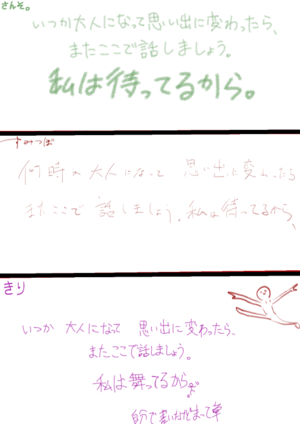 さんそ。
いつか大人になって思い出に変わったら、
またここで話しましょう。
私は待ってるから。
すみつぼ
何時か大人になって 思い出に変わったら
またここで 話しましょう。私は待ってるから、
きり
いつか 大人になって 思い出に変わったら、
またここで話しましょう。
私は舞ってるから。
自分で書いながら